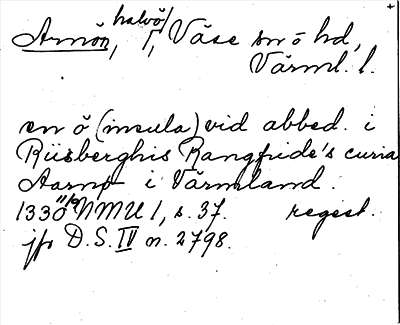 Arnön, halvö, Väse sn o hd,
Värml. l.
en ö (insula) vid abbed. i
Riisberghis Rangfride's curia
Aarnø i Värmland.
1330 11/9 NMU 1, s. 37. regest.
jfr D.S. IV n. 2798.